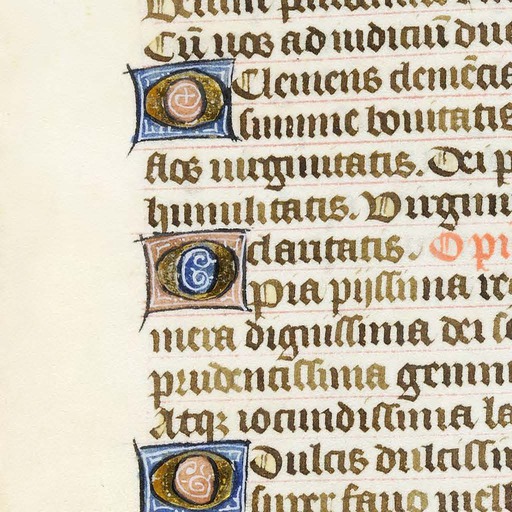 Cū nos ad iudiciū due
O Clemens clemēcie
summe bonitatis
flos uirginitatis. Dei p
humilitatis. Virgini
claritatis. O pi
O Pia pijssima re
mera dignissima dei
prudentissima gemm
Atqꝫ iocundissima la
O Dulcis dulcissi
super fauo mel